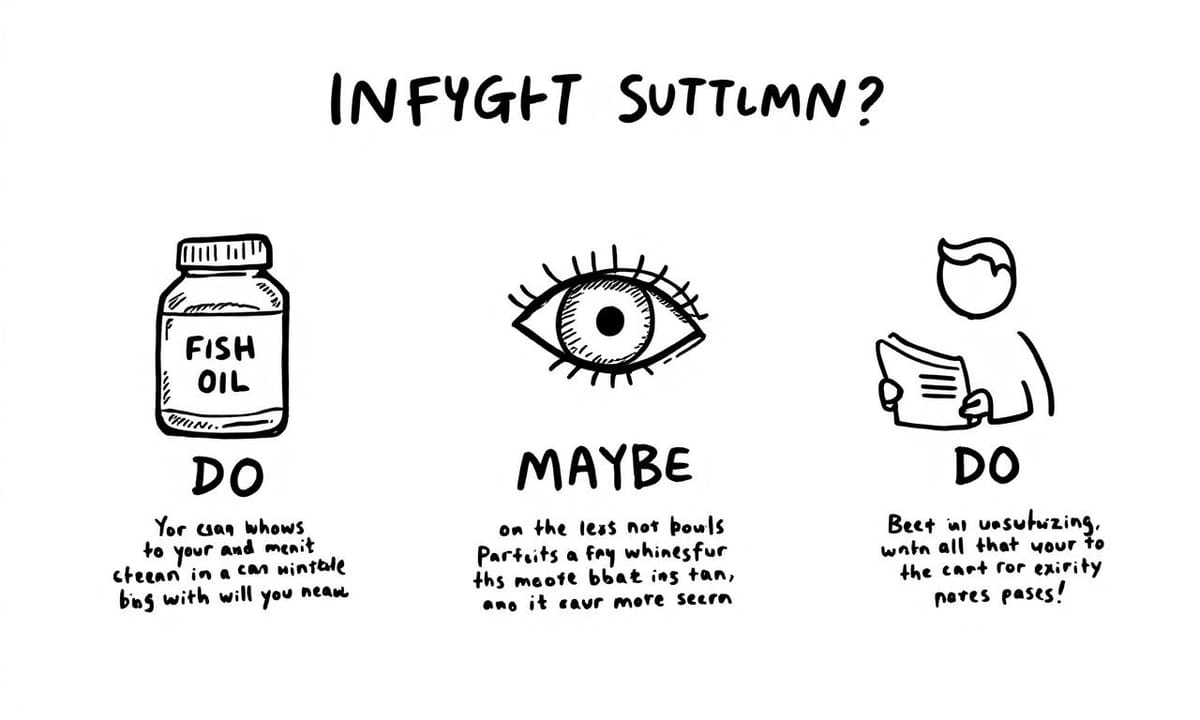 INFYGHT SUTTLMN?
FISH
OIL
DO
Yor csan whows
to your and menit
cteean in a can wintble
bing with will you neaw
MAYBE
on the less not bowls
Partuits a fny whinesfur
ths meote bbat ins tan,
ano it caur more secrn
DO
Beet in unsuhuzing,
wntn all that your to
the cart for exirity
notes pases!